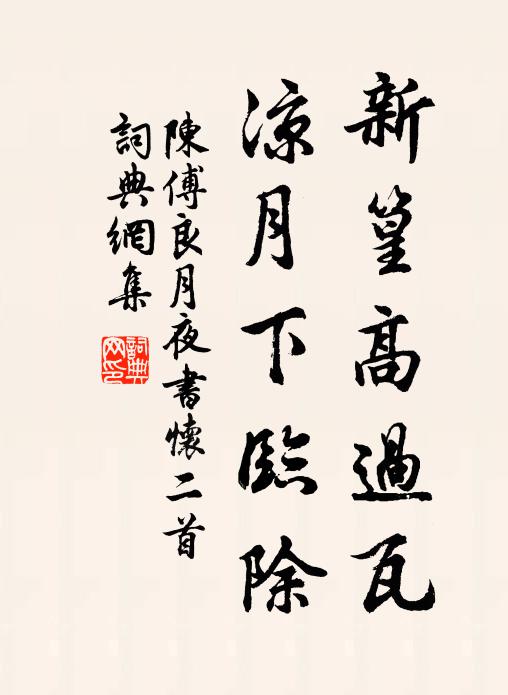 新篁高過瓦
涼月下臨除
陳傅良月夜書懷二首
詞典網集
詞典網印